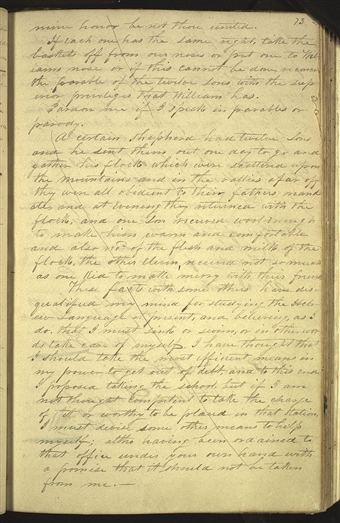 73
mine honor be not thou united.
If each one has the same right, take the
baskets off from our nose or put one to Wil
iams nose or if this cannot be done, reconcile
the parable of the twelve sons with the sup
erior privileges that William has.
Pardon me if I speak in parables or
parody.
A certain Shepherd had twelve Sons
and he sent them out one day to go and
gather his flocks which were scattered upon
the mountains and in the vallies afar off
they were all obedient to their fathers mand
ate, and at Evening they returned with the
flocks, and one Son received wool enough
to make him warm and comfortable
and also recd of the flesh and milk of the
flock, the other Eleven received not so much
as one Kid to make merry with their friends
These facts with some others have dis-
qualified my mind for studying the Heb-
rew Language at present, and believing, as I
do, that I must sink or swim, or in other wor
ds take care of myself, I have thought that
I should take the most efficient means in
my power to get out of debt, and to this end
I proposed taking the school, but if I am
not thought competent to take the charge
of it, or worthy to be placed in that station,
I must devise some other means to help
myself; altho having been ordained to
that office under your own hand with
a promise that it should not be taken
from me.—